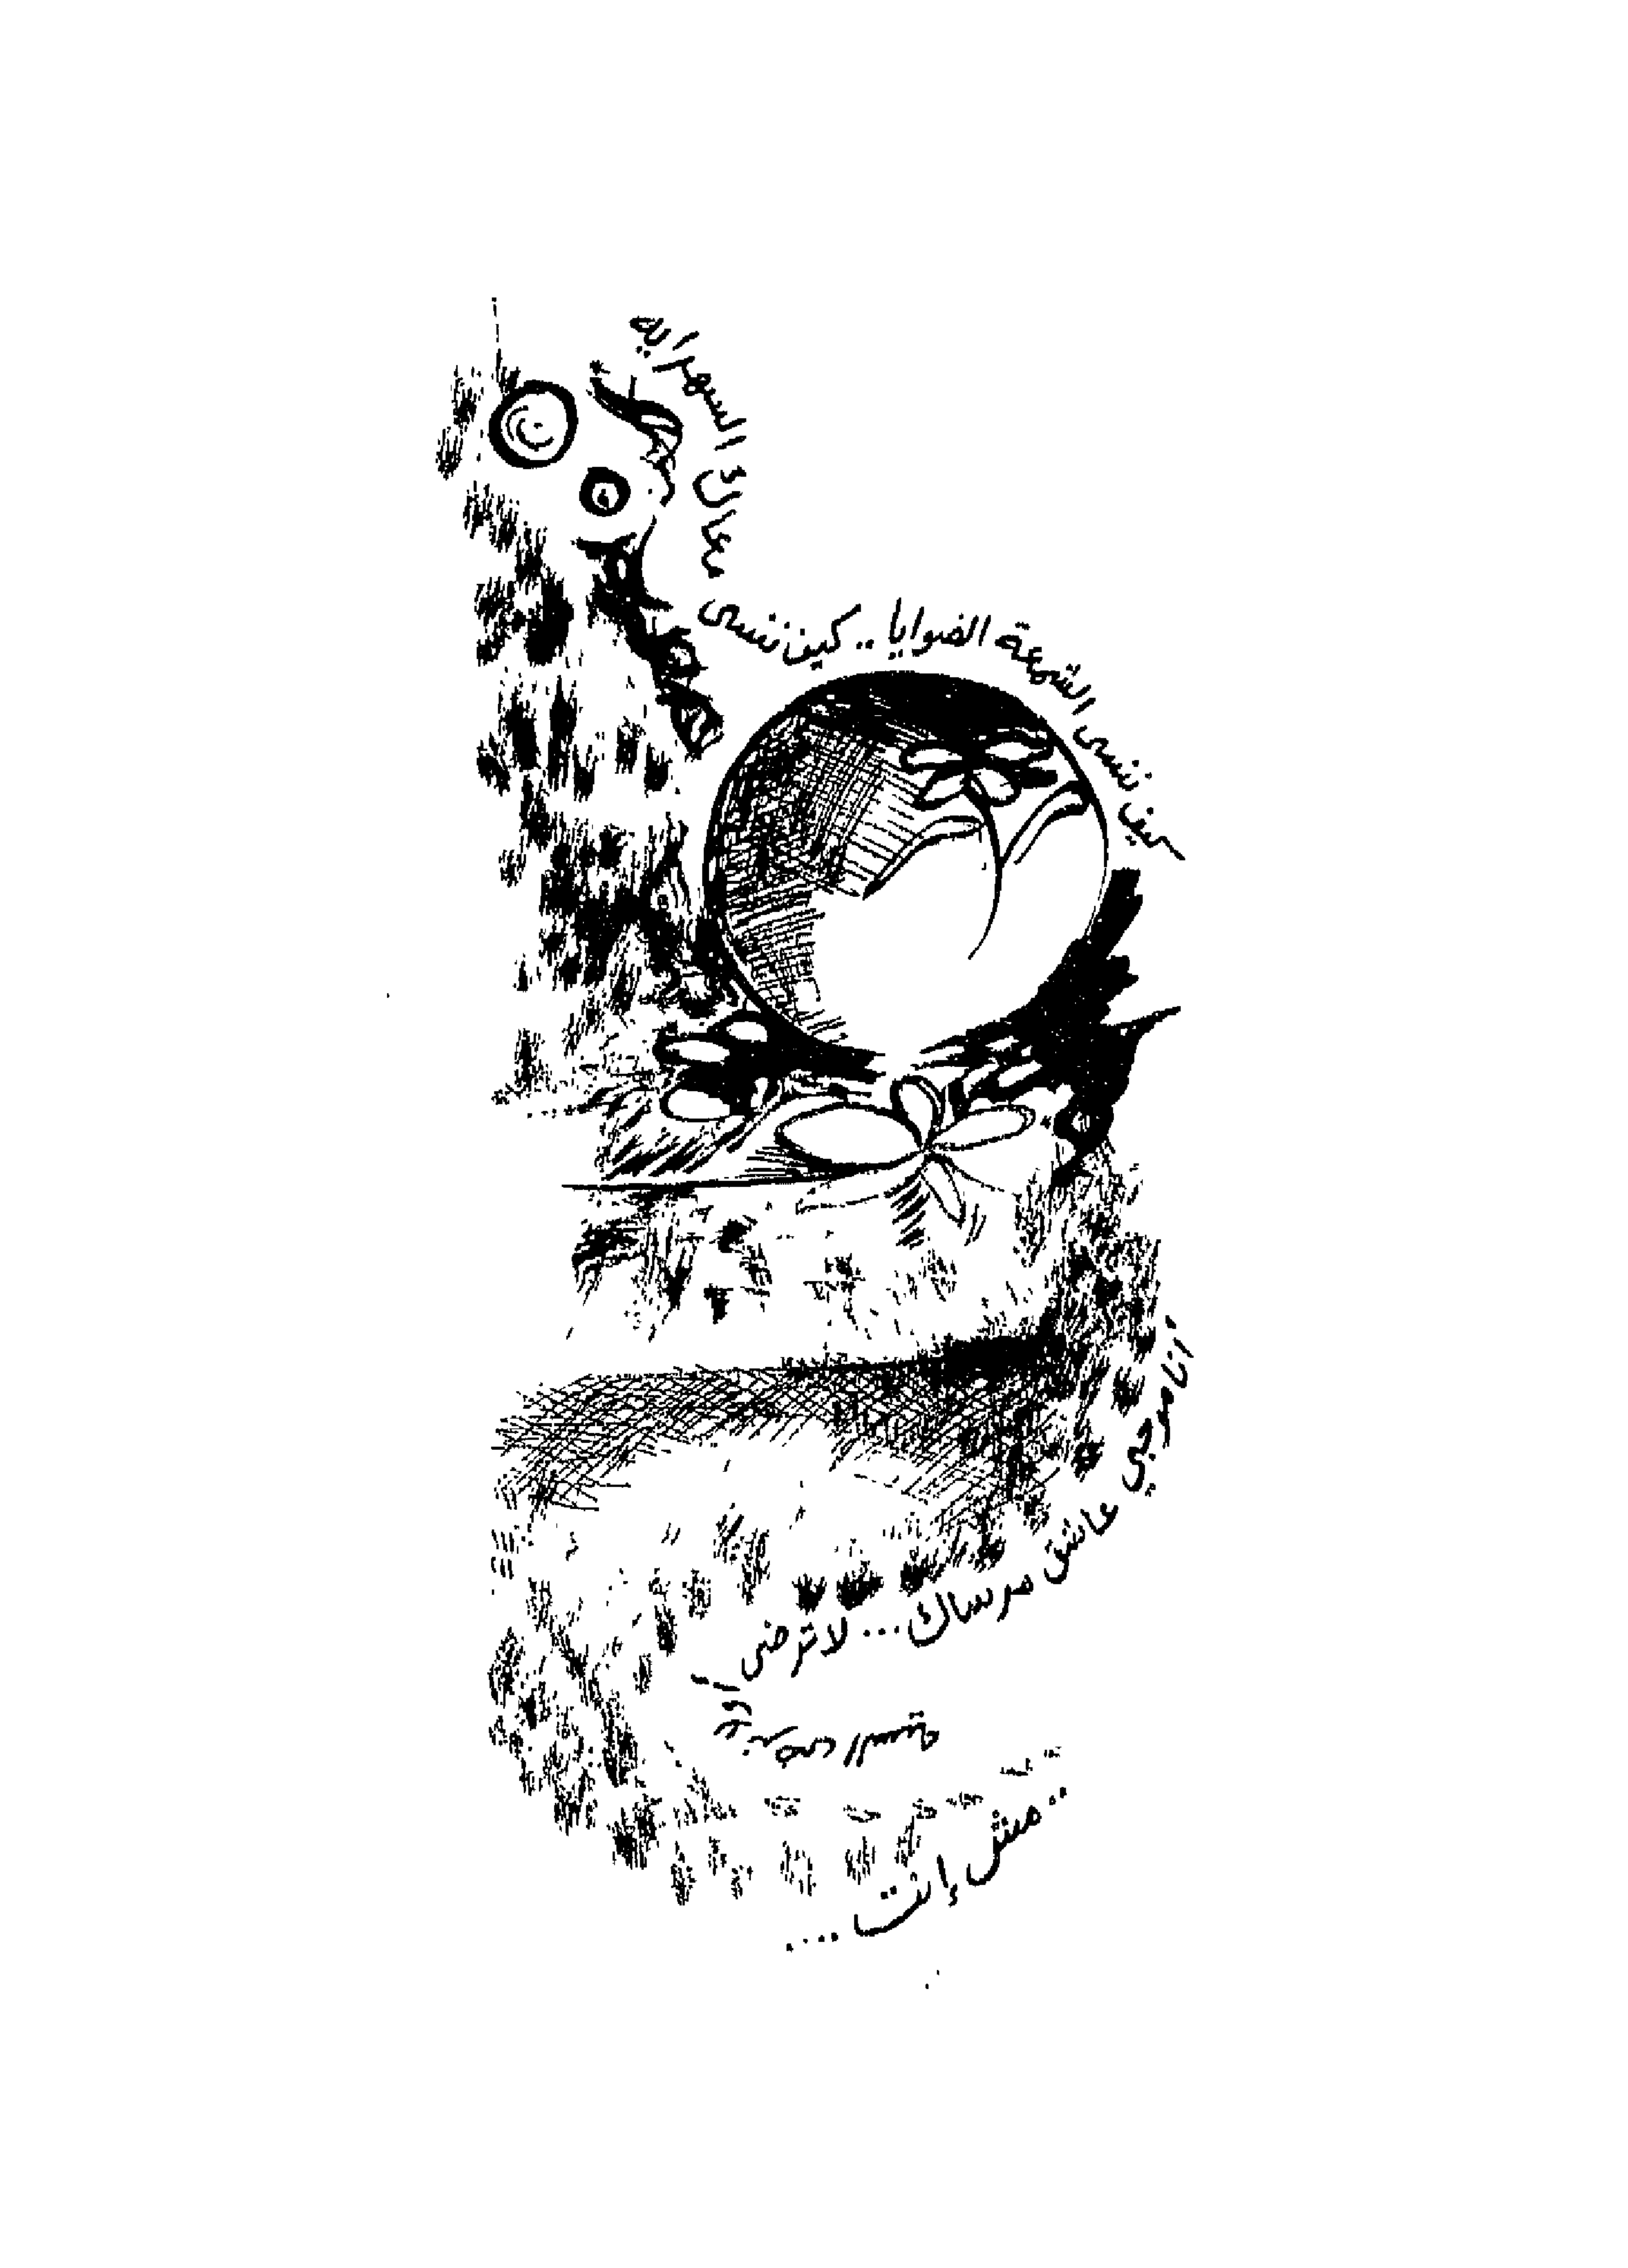 كيف ننسى الشمعة الضوايا .. كيف ننسى معاك السهراية
أنا موجي عاشق مرساك ... لا ترضى
.. مش إنت ....